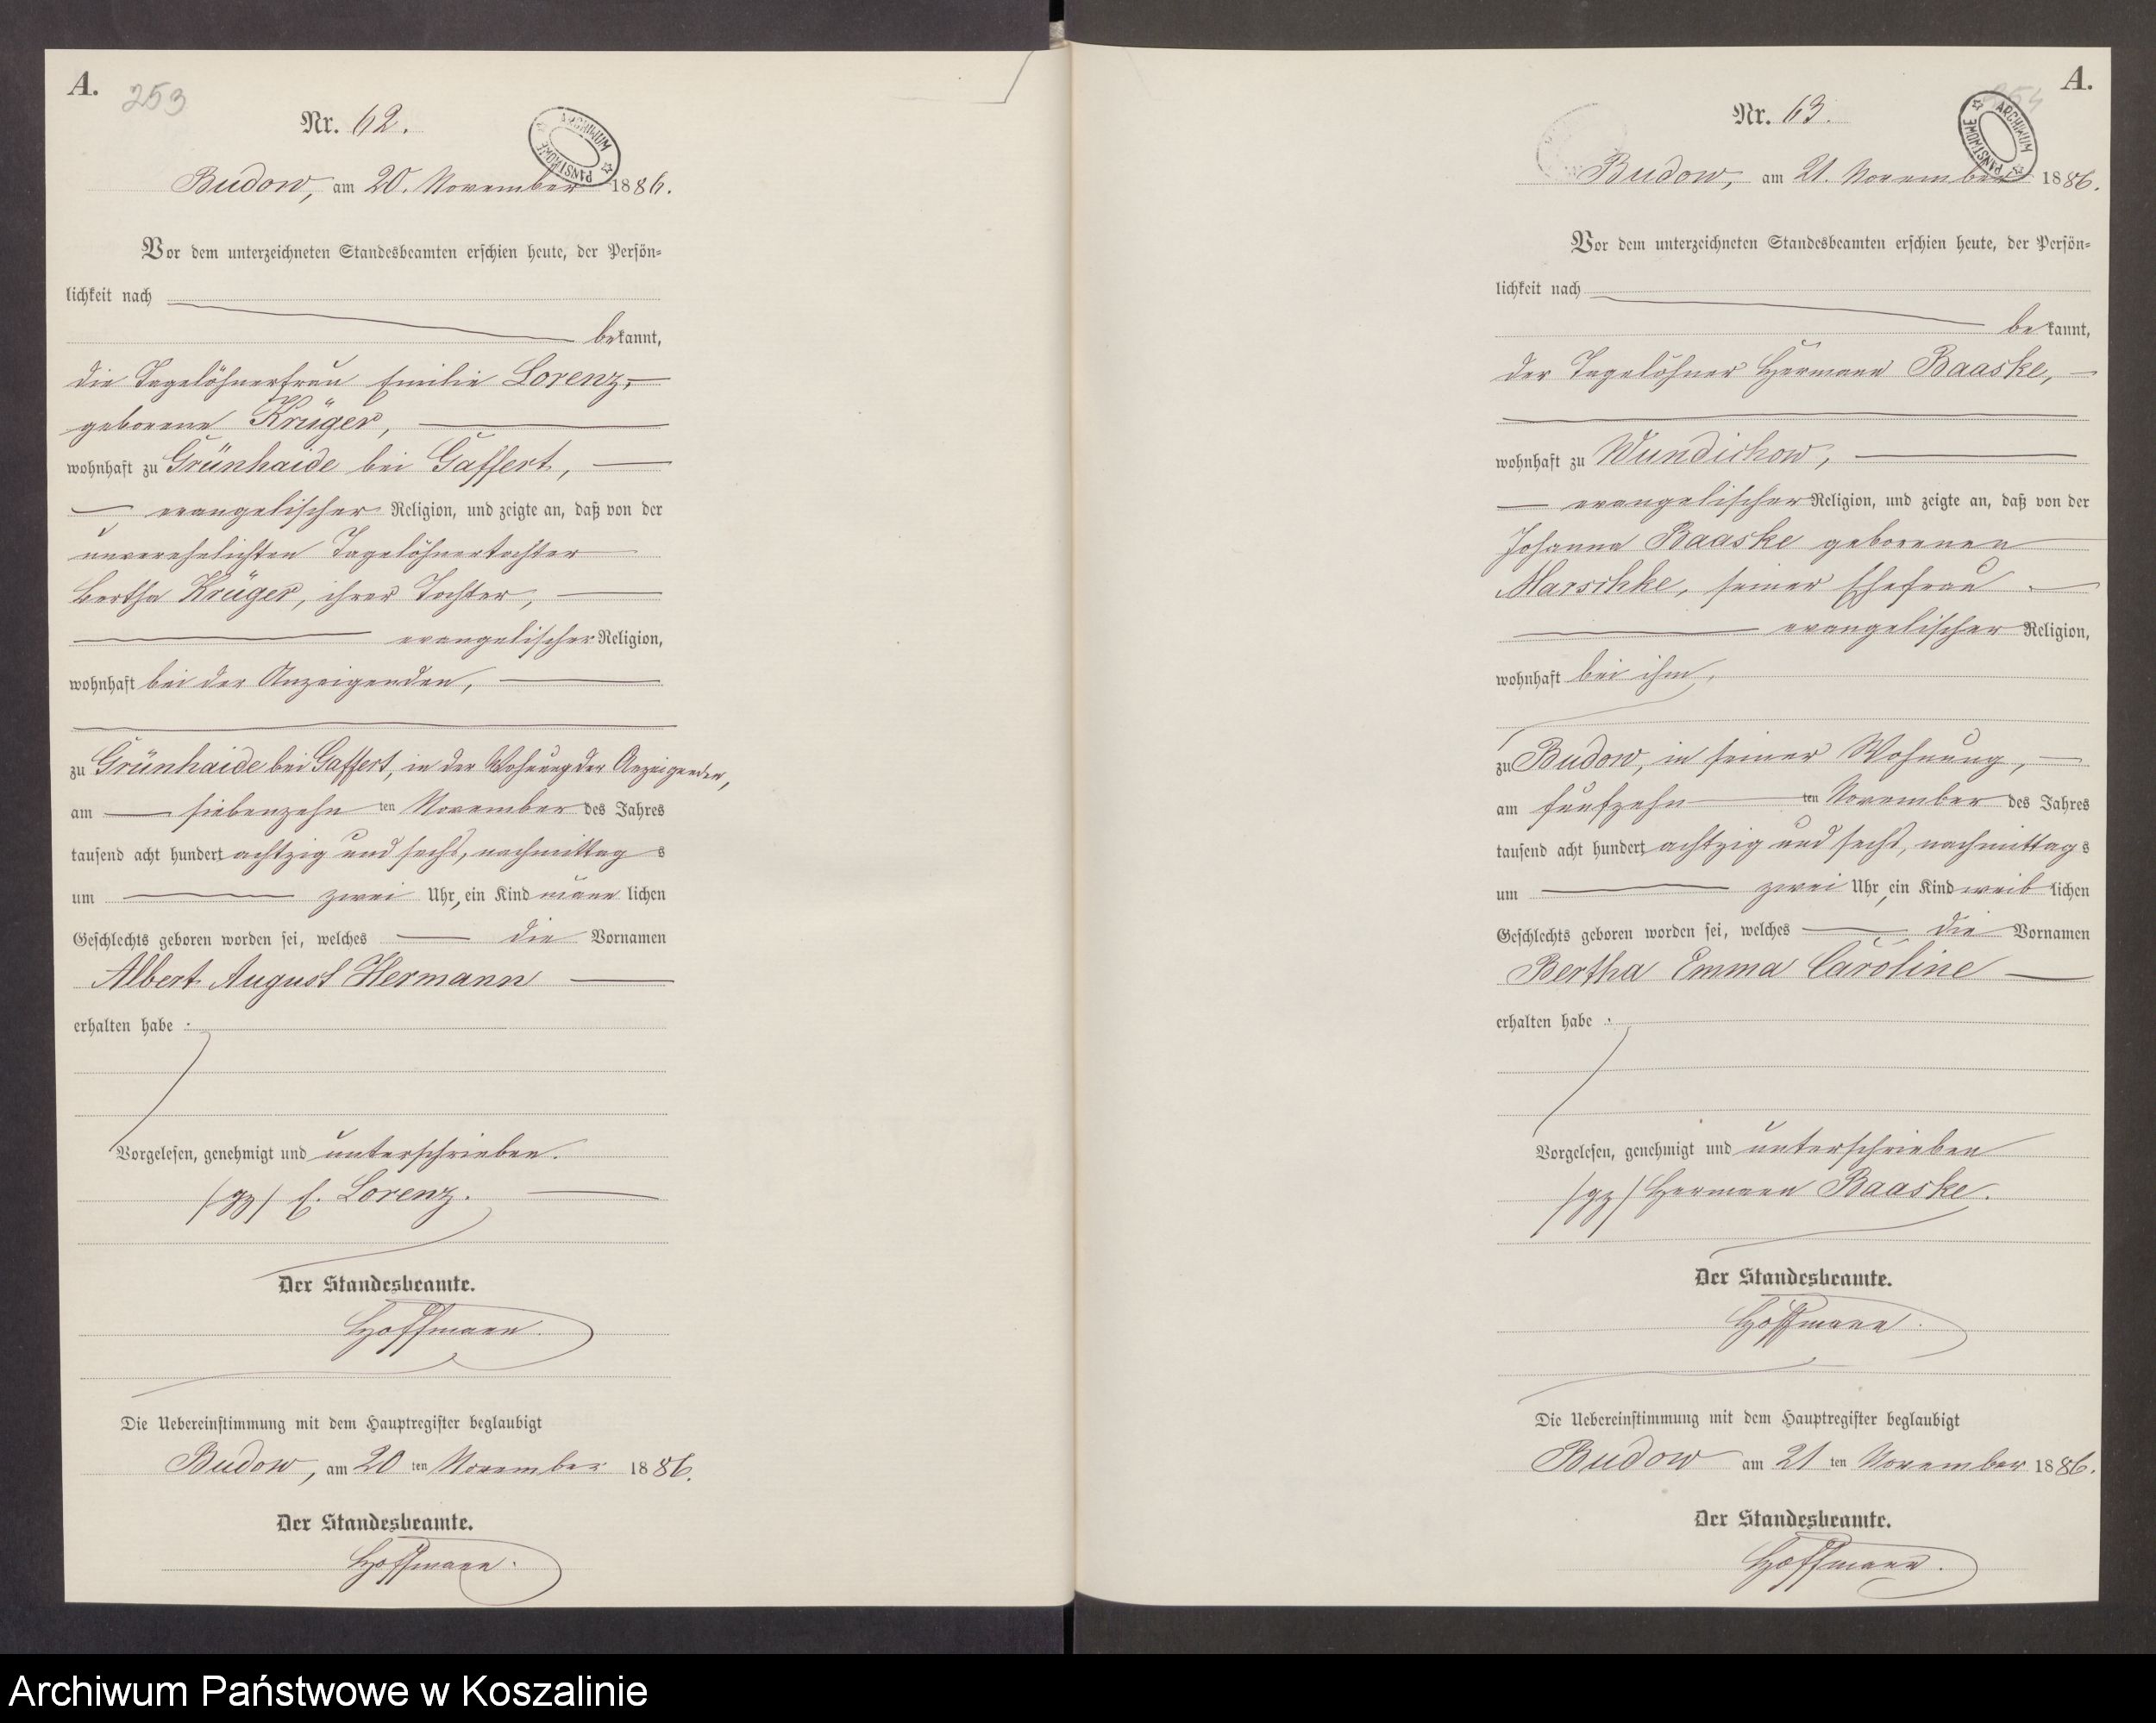 A.
253
Nr. 62.
ARCHIWUM PAŃSTWOWE
Budow, am 20. November 1886.
Vor dem unterzeichneten Standesbeamten erschien heute, der Persön-
lichkeit nach
bekannt,
die Tagelöhnerfrau Emilie Lorenz,
geborene Krüger,
wohnhaft zu Grünhaide bei Gaffert,
evangelischer Religion, und zeigte an, daß von der
unverehelichten Tagelöhnertochter
Bertha Krüger, ihrer Tochter,
evangelischer Religion,
wohnhaft bei der Anzeigenden,
zu Grünhaide bei Gaffert, in der Wohnung der Anzeigenden,
am siebenzehn ten November des Jahres
tausend acht hundert achtzig und sechs, nachmittag s
um zwei Uhr, ein Kind männ lichen
Geschlechts geboren worden sei, welches die Vornamen
Albert August Hermann
erhalten habe.
Vorgelesen, genehmigt und unterschrieben.
/gz/ E. Lorenz.
Der Standesbeamte.
Hoffmann.
Die Uebereinstimmung mit dem Hauptregister beglaubigt
Budow, am 20 ten November 1886.
Der Standesbeamte.
Hoffmann.
A.
254
Nr. 63.
ARCHIWUM PAŃSTWOWE
Budow, am 21. November 1886.
Vor dem unterzeichneten Standesbeamten erschien heute, der Persön-
lichkeit nach
bekannt,
der Tagelöhner Hermann Baaske,
wohnhaft zu Wundichow,
evangelischer Religion, und zeigte an, daß von der
Johanna Baaske geborenen
Marschke, seiner Ehefrau
evangelischer Religion,
wohnhaft bei ihm,
zu Budow, in seiner Wohnung,
am fünfzehn ten November des Jahres
tausend acht hundert achtzig und sechs, nachmittag s
um zwei Uhr, ein Kind weib lichen
Geschlechts geboren worden sei, welches die Vornamen
Bertha Emma Caroline
erhalten habe.
Vorgelesen, genehmigt und unterschrieben
/gz/ Hermann Baaske.
Der Standesbeamte.
Hoffmann.
Die Uebereinstimmung mit dem Hauptregister beglaubigt
Budow am 21 ten November 1886.
Der Standesbeamte.
Hoffmann.
Archiwum Państwowe w Koszalinie